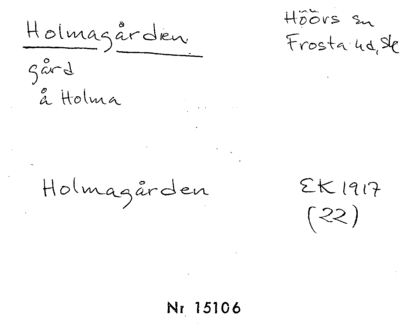 Holmagården
Höörs sn
Frosta hd, Sk
gård
å Holma
Holmagården
EK 1917
(22)
Nr 15106